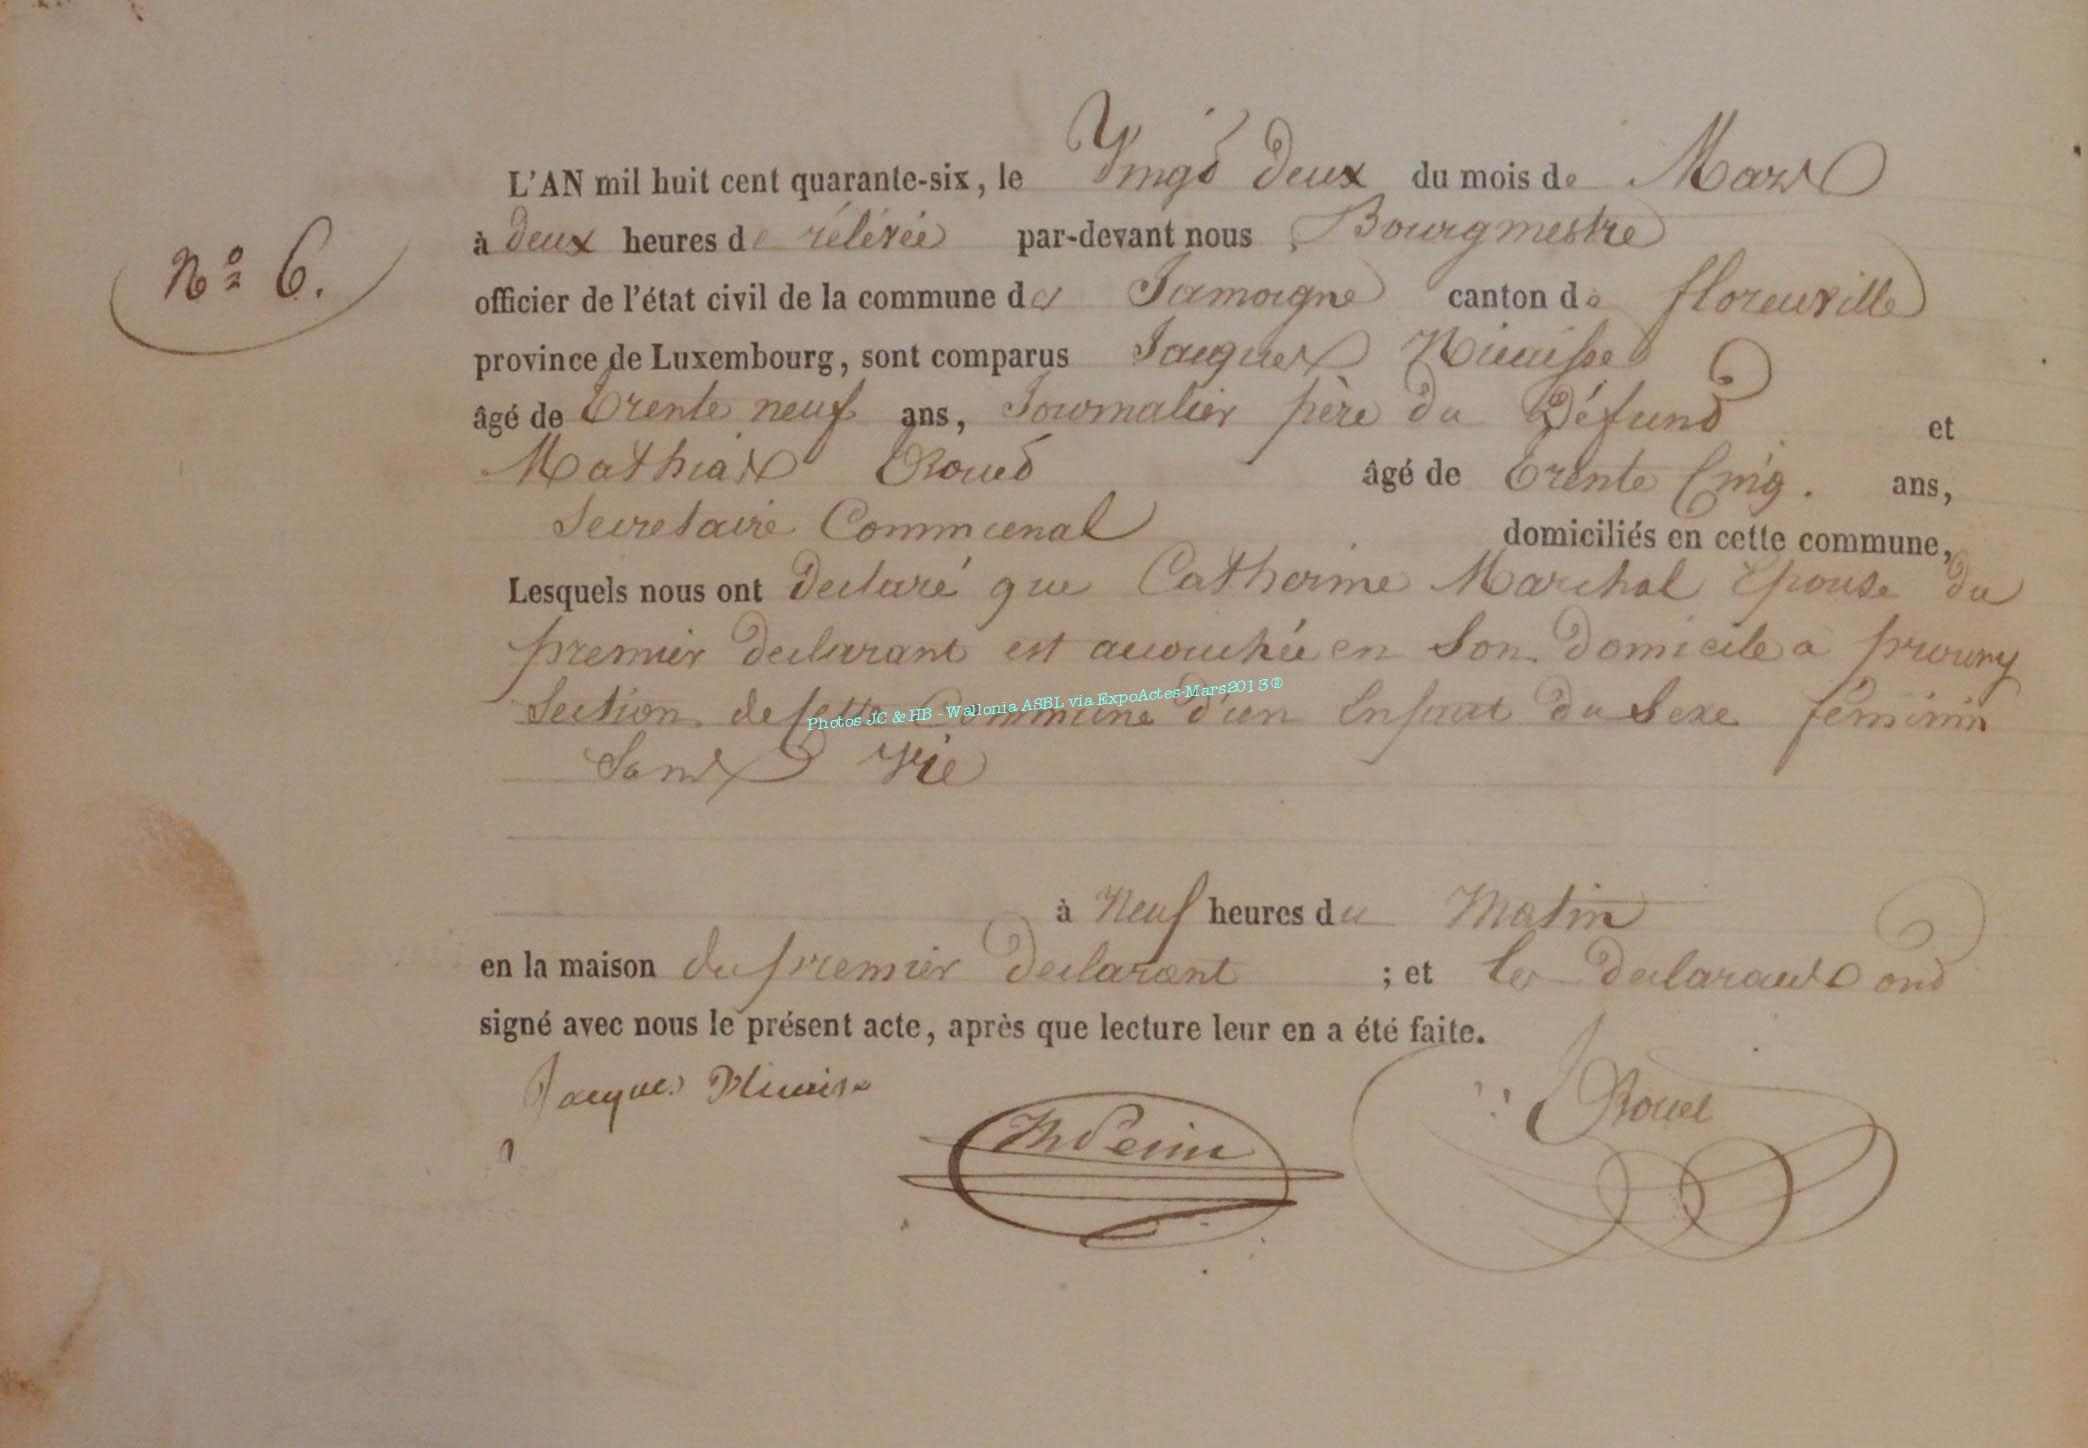 L'AN mil huit cent quarante-six, le Vingt deux du mois de Mars
à deux heures de rélévée par-devant nous Bourgmestre
N° 6.
officier de l'état civil de la commune de Jamoigne canton de florenville
province de Luxembourg, sont comparus Jacques Nicaisse
âgé de trente neuf ans, Journalier père du Défunt et
Mathias Rouet âgé de trente Cinq. ans,
Secretaire Communal domiciliés en cette commune,
Lesquels nous ont declaré que Catherine Marchal Epouse du
premier declarant est accouchée en Son domicile a prouvy
Section de cette Commune d'un Enfant du Sexe féminin
Photos JC & HB - Wallonia ASBL via ExpoActes-Mars2013®
Sans Vie
à Neuf heures du Matin
en la maison du premier declarant ; et les declarants ont
signé avec nous le présent acte, après que lecture leur en a été faite.
Jacques Nicaise
Rouet